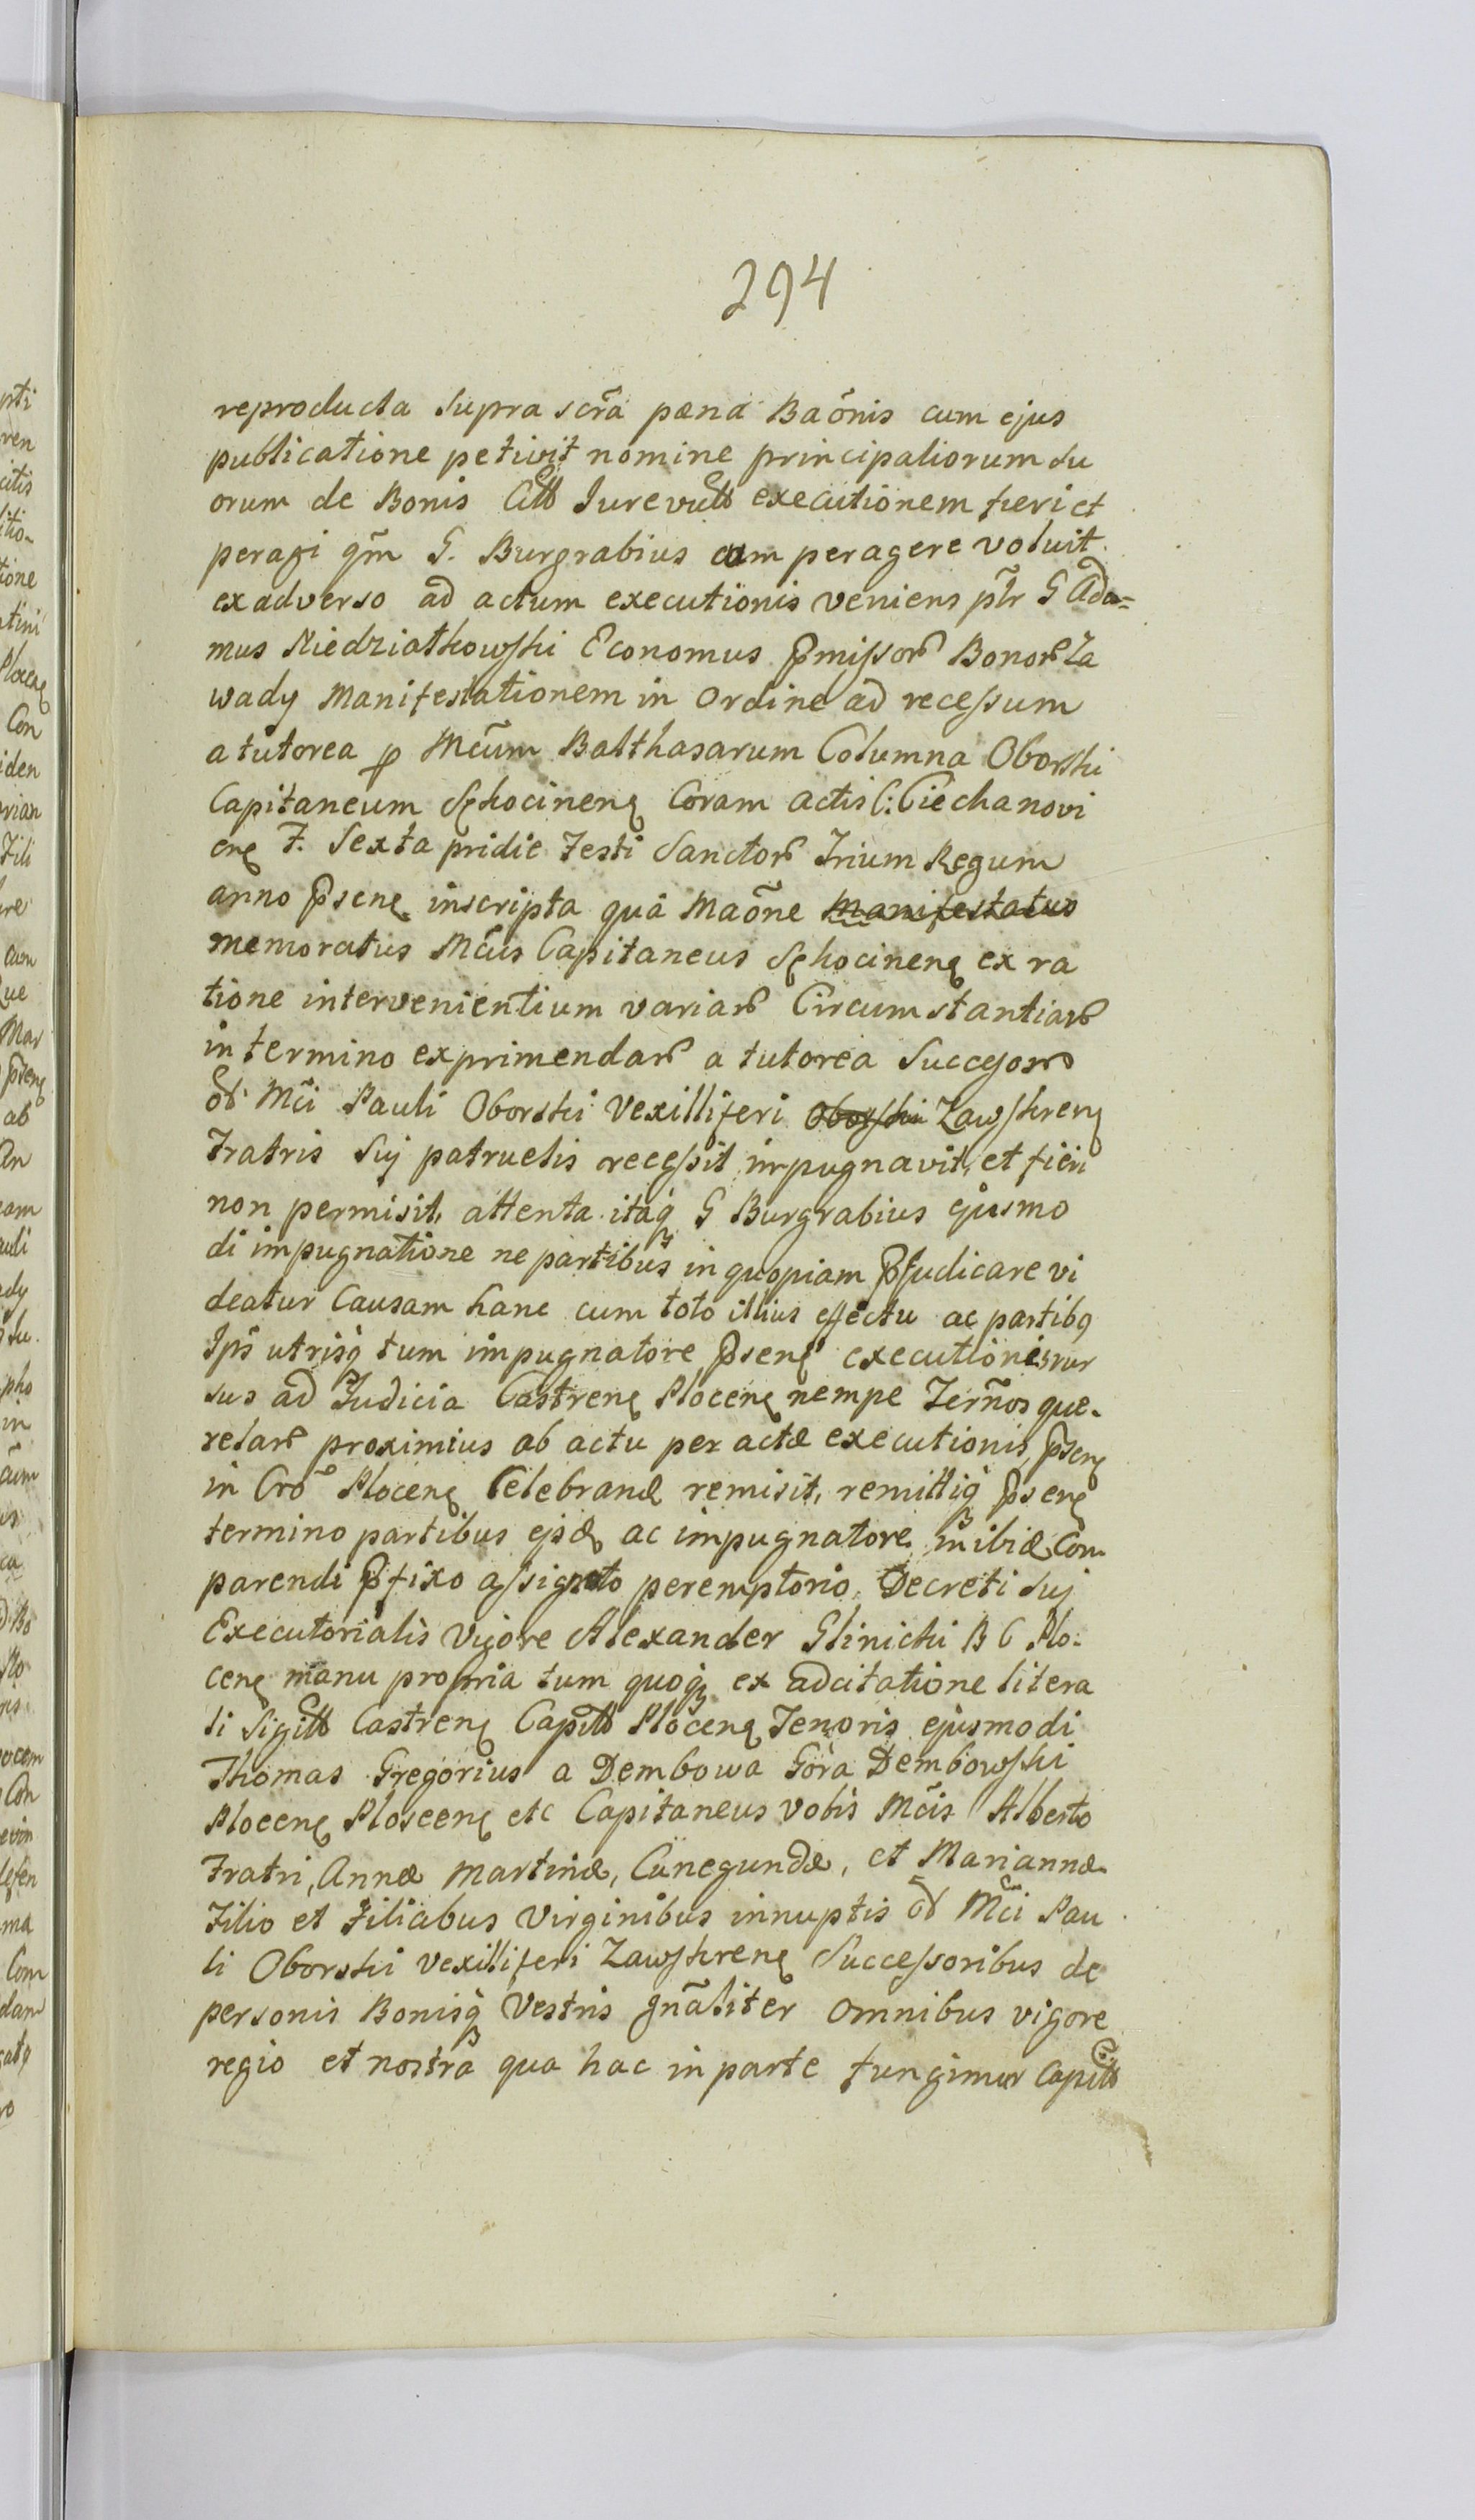 294
reproducta supra scr̃a pœna Baõnis cum ejus
publicatione petivit nomine principaliorum su
orum de Bonis Citt Jurevictt executionem fieri et
peragi qm̃ G. Burgrabius eam peragere voluit
ex adverso ad actum executionis veniens ptr̃ G Ada=
mus Niedziałkowski Economus p̃missor̃ Bonor̃ Za
wady Manifestationem in ordine ad recessum
a tutorea p Mcũm Balthasarum Columna Oborski
Capitaneum Schocinenȩ Coram actis C: Ciechanovi
enȩ F. Sexta pridie Festi Sanctor̃ Trium Regum
anno p̃senȩ inscripta quâ Maõne Manifestatus
memoratus Mc̃us Capitaneus Schocinenȩ ex ra
tione intervenientium variar̃ Circumstantiar̃
in termino exprimendar̃ a tutorea Successor̃
od̃ Mc̃i Pauli Oborski Vexilliferi Oborski Zawskrenȩ
Fratris Suj patruelis recessit impugnavit, et fieri
non permisit, attenta itaq́ G Burgrabius ejusmo
di impugnatione ne partibus in quopiam p̃judicare vi
deatur Causam hanc cum toto illius effectu ac partibq
Ips̃ utrisq́ tum impugnatore p̃senȩ executionis rur
sus ad Judicia Castrenȩ Plocenȩ nempe Terños que-
relar̃ proximius ab actu per actæ executionis p̃senȩ
in Crõ Plocenȩ Celebrand̨ remisit, remittiq́ p̃senȩ
termino partibus ejsd̨ ac impugnatore inibid̨ Com
parendi p̃fixo assignato peremptorio, Decreti Suj
Executorialis Vigore Alexander Glinicki B C Plo:
cenȩ manu propria tum quoq́ ex adcitatione litera
li Sigitt Castrenȩ Capitt Plocenȩ Tenoris ejusmodi
Thomas Gregorius a Dembowa Góra Dembowski
Plocenȩ Ploscenȩ etc Capitaneus vobis Mc̃is Alberto
Fratri, Annæ Martinæ, Cunegundæ, et Mariannæ
Filio et Filiabus Virginibus innuptis od̃ Mc̃i Pau
li Oborski Vexilliferi Zawskrenȩ Successoribus de
personis Bonisq́ Vestris gnãliter omnibus vigore
regio et nostra qua hac in parte fungimur Capitt